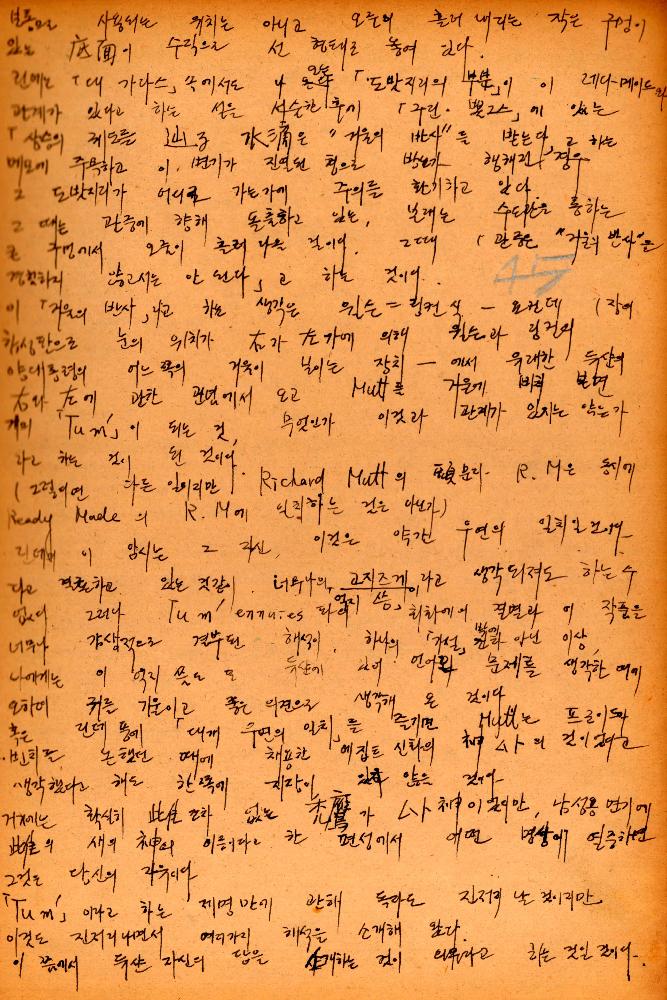 보통으로 사용되는 위치는 아니고 오줌의 흘러 내리는 작은 구멍이
있는 底面이 수직으로 선 형태로 놓여 있다.
린데는 「대 가다스」 속에서도 나 온 「도밧지리의 」이 이 레디-메이드와
관계가 있다고 하는 설을 서술한 후에 「구린·뽁스」에 있는
「상승의 궤도를 그리는 水滴은 "거울의 반사"를 받는다」고 하는
메모에 주목하고 이 변기가 진열된 형으로 행해진 경우
그 도밧지리가 어디로 가는가에 주의를 환기하고 있다.
그 때는 관중에 향해 돌출하고 있는, 본래는 수도관을 통하는
큰 구멍에서 오줌이 흘러 나올 것이며. 그때 「관중은 "거울의 반사"를
경험하지 않고서는 안 된다」고 하는 것이다.
45
이 「거울의 반사」라고 하는 생각은 윌슨=링컨 식 — 요컨데 (장여
눈의 위치가 右가 左가에 의해 윌슨과 링컨의
양대통령의 어느 쪽의 거울이 보이는 장치 — 에서 유래한 듯한
右와 左에 관한 관념에서 오고 Mutt를 거울에 비춰 보면
거의 「Tu m'」이 되는 것, 무엇인가 이것과 관계가 있지는 않은가
라고 하는 것이 된 것이다.
(그렇다면 다른 일이지만 Richard Mutt의 頭분리 R. M은 동시에
Ready Made의 R. M에 일치하는 것은 아닌가)
린데의 이 암시는 그 자신, 이것은 약간 우연의 일치일 것이다
라고 하고 있는 것같이 너무나의, 고지즈게 라고 생각되져도 하는 수
없다 그러나 Tu m' ennuies 파의 회화에의 결별과 이 작품을
너무나 감상적으로 결부된 해석이, 하나의 「가설」 아닌 이상,
나에게는 이 억지 쯤도 또 듀샨에 있어 언어의 문제를 생각한 데에
오히려 귀를 기울이고 좋은 의견으로 생각해 온 것이다
혹은 린데 풍에 「대개 우연의 일치」를 즐기면 Mutt는 프로이드가
논했던 때에 채용한 에집트 신화의 神 ムト의 것이었다고
생각했다고 해도 한쪽에 지장이 있지 않은 것이다.
거게는 확실히 此雄 없는 禿鷹가 ムト神이었지만, 남성용 변기에
此雄의 새의 神의 이름이라고 한 편성에서 어떤 명상에 열중하면
그것은 당신의 자유이다
「Tu m'」이라고 하는 제명만에 관해 독자도 진저리 난 것이지만
이것도 진저리나면서 여러가지 해석을 소개해 왔다.
이 쯤에서 듀샨 자신의 답을 소개하는 것이 의무라고 하는 것인 것이다.